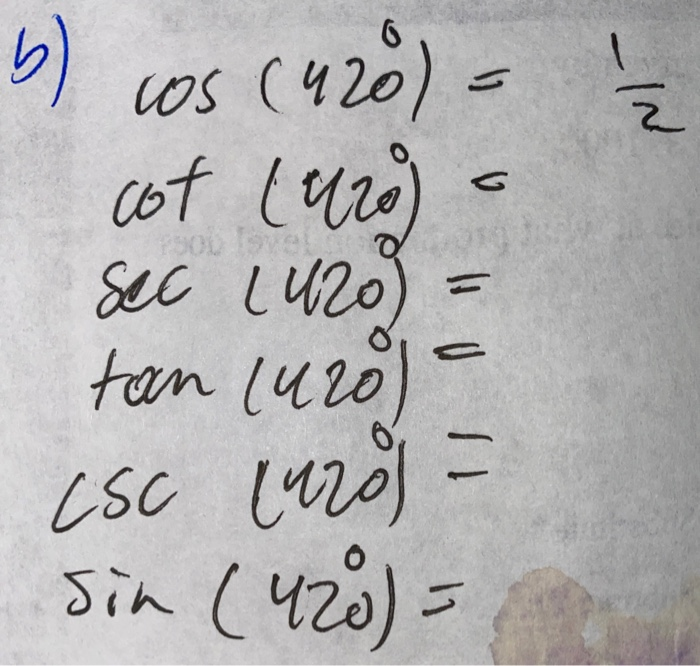 b) cos (420°) = 1/2
cot (420°) =
sec (420°) =
tan (420°) =
csc (420°) =
sin (420°) =